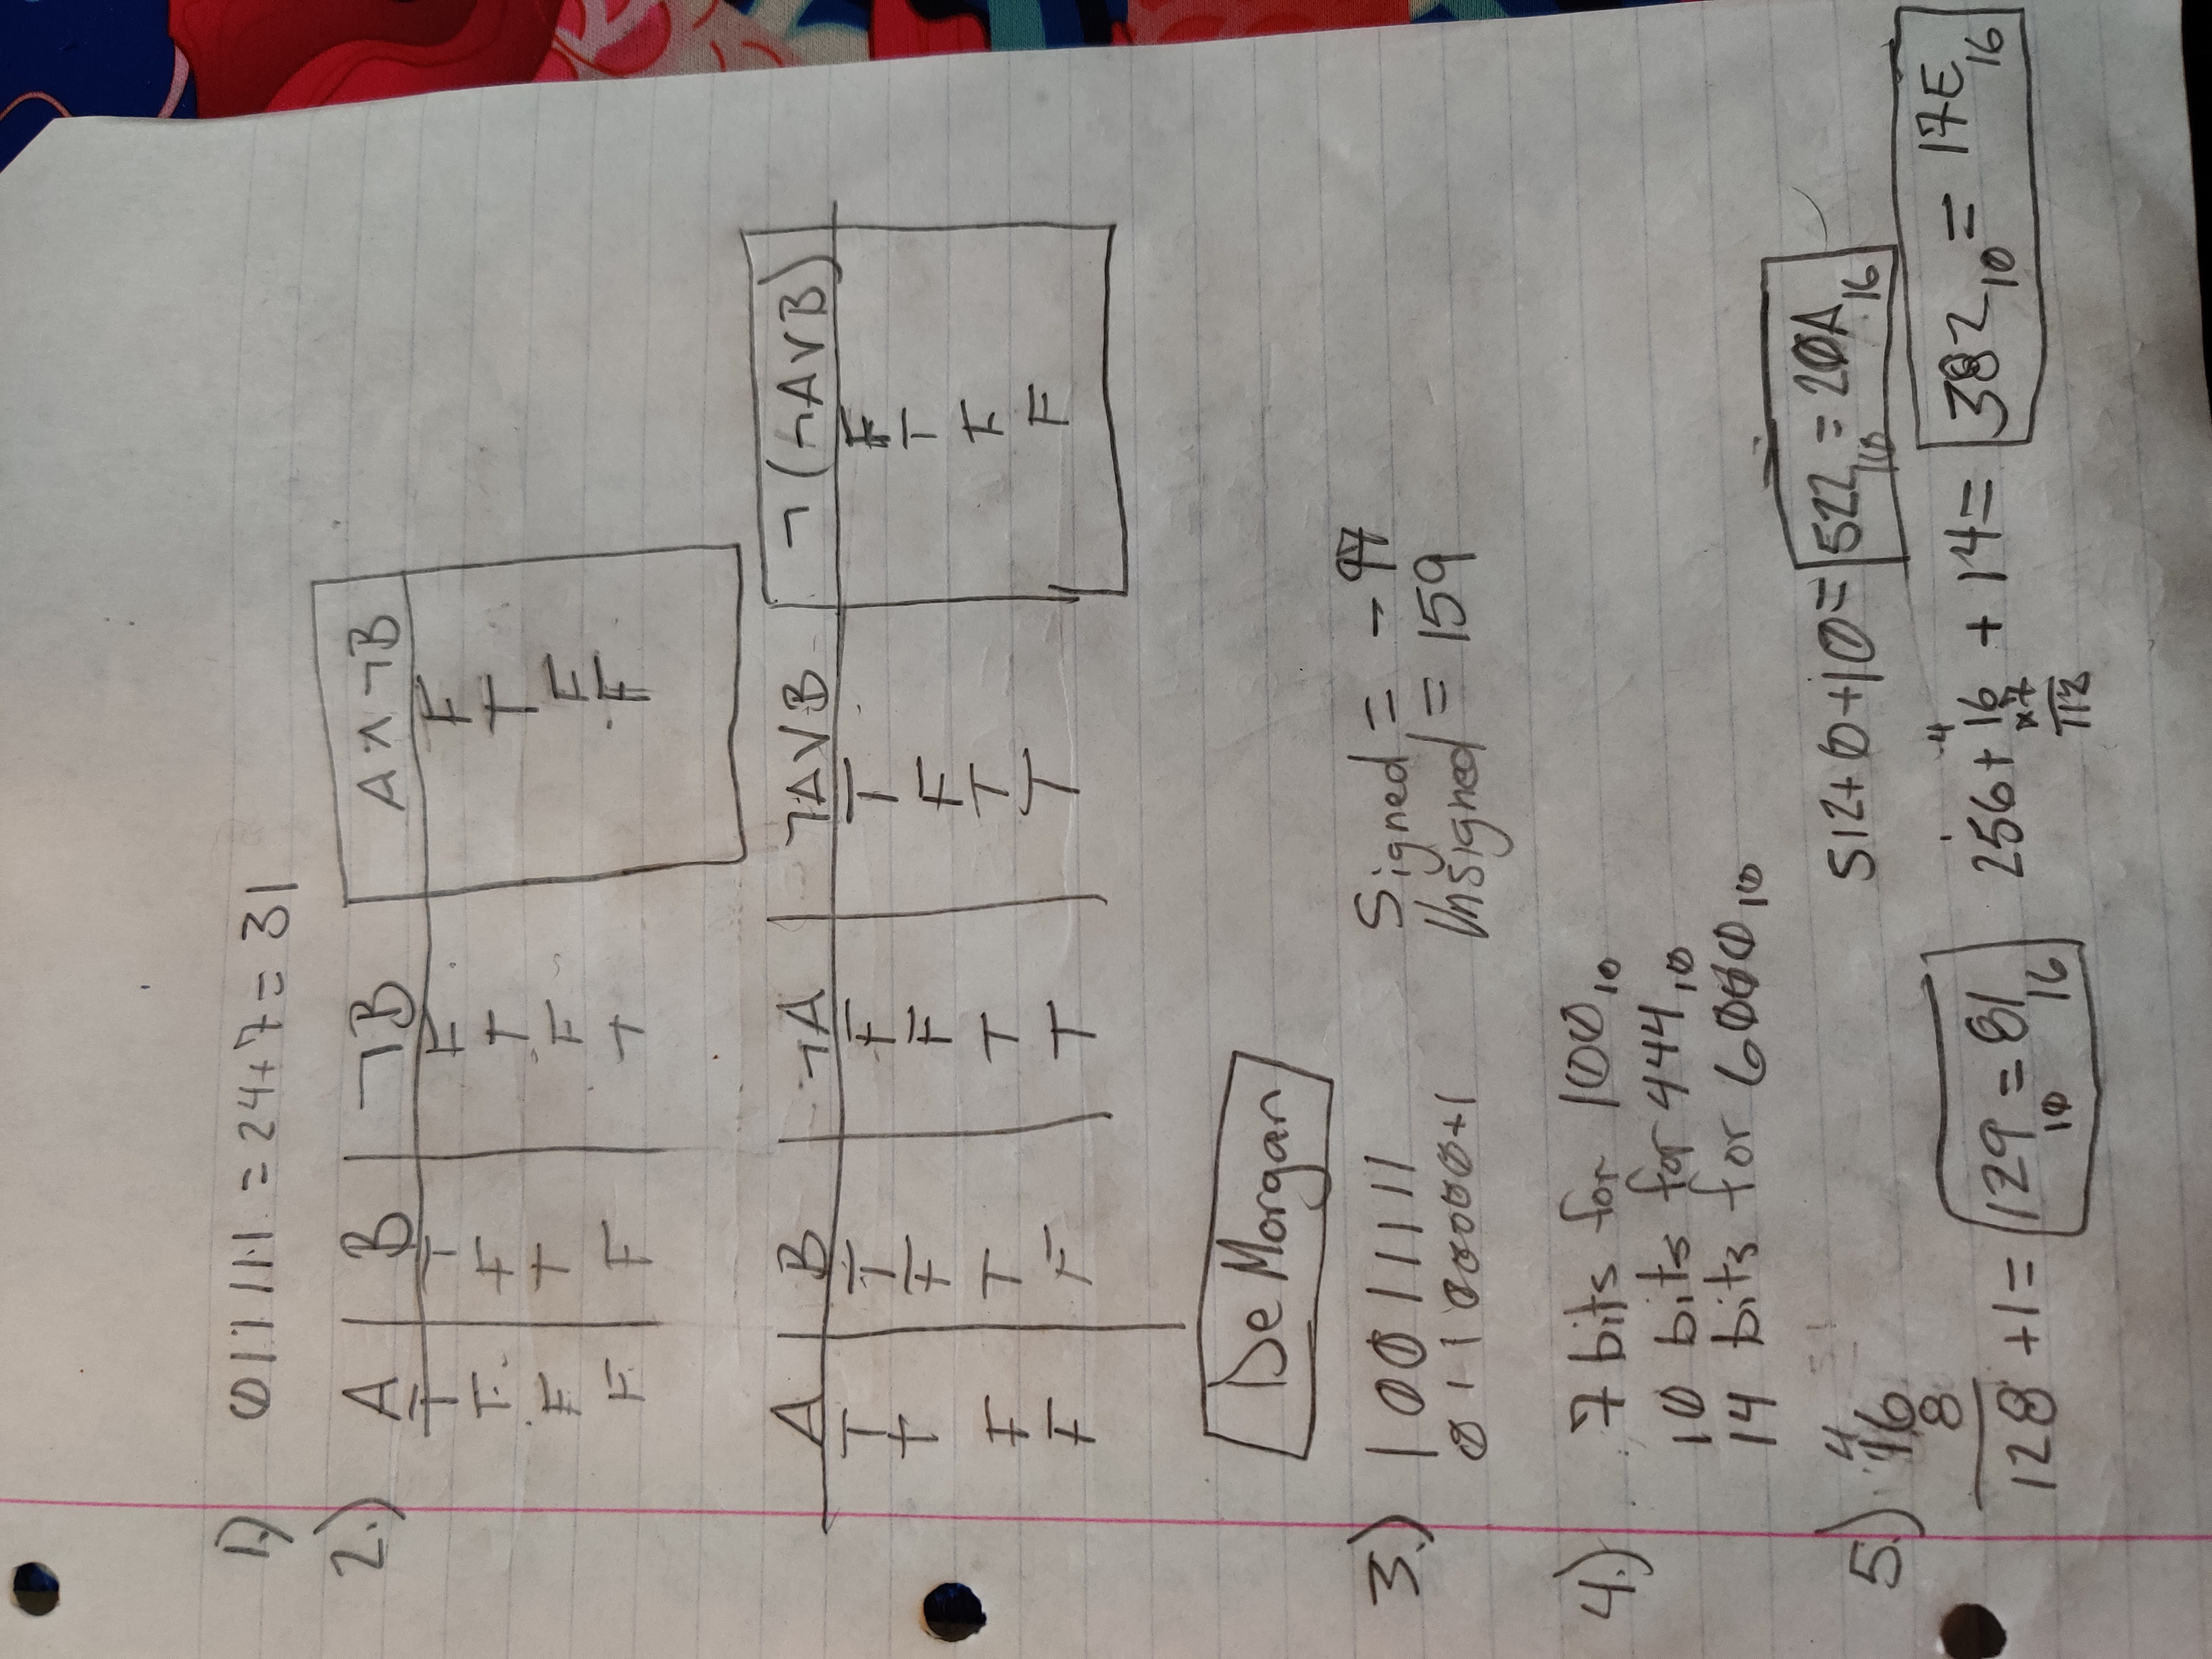 1.) 011111 = 24+7 = 31
2.) A B ¬B A∧¬B
T T F F
T F T T
F T F F
F F T F
A B ¬A ¬A∨B ¬(¬A∨B)
T T F T F
T F F F T
F T T T F
F F T T F
De Morgan
3.) 10011111 Signed = -97
01100000+1 Unsigned = 159
4.) 7 bits for 100₁₀
10 bits for 444₁₀
14 bits for 6000₁₀
5.) 4
16
8
128 +1= 129₁₀ = 81₁₆
512+0+10= 522₁₀ = 20A₁₆
4
256+ 16 + 14= 382₁₀ = 17E₁₆
x7
112